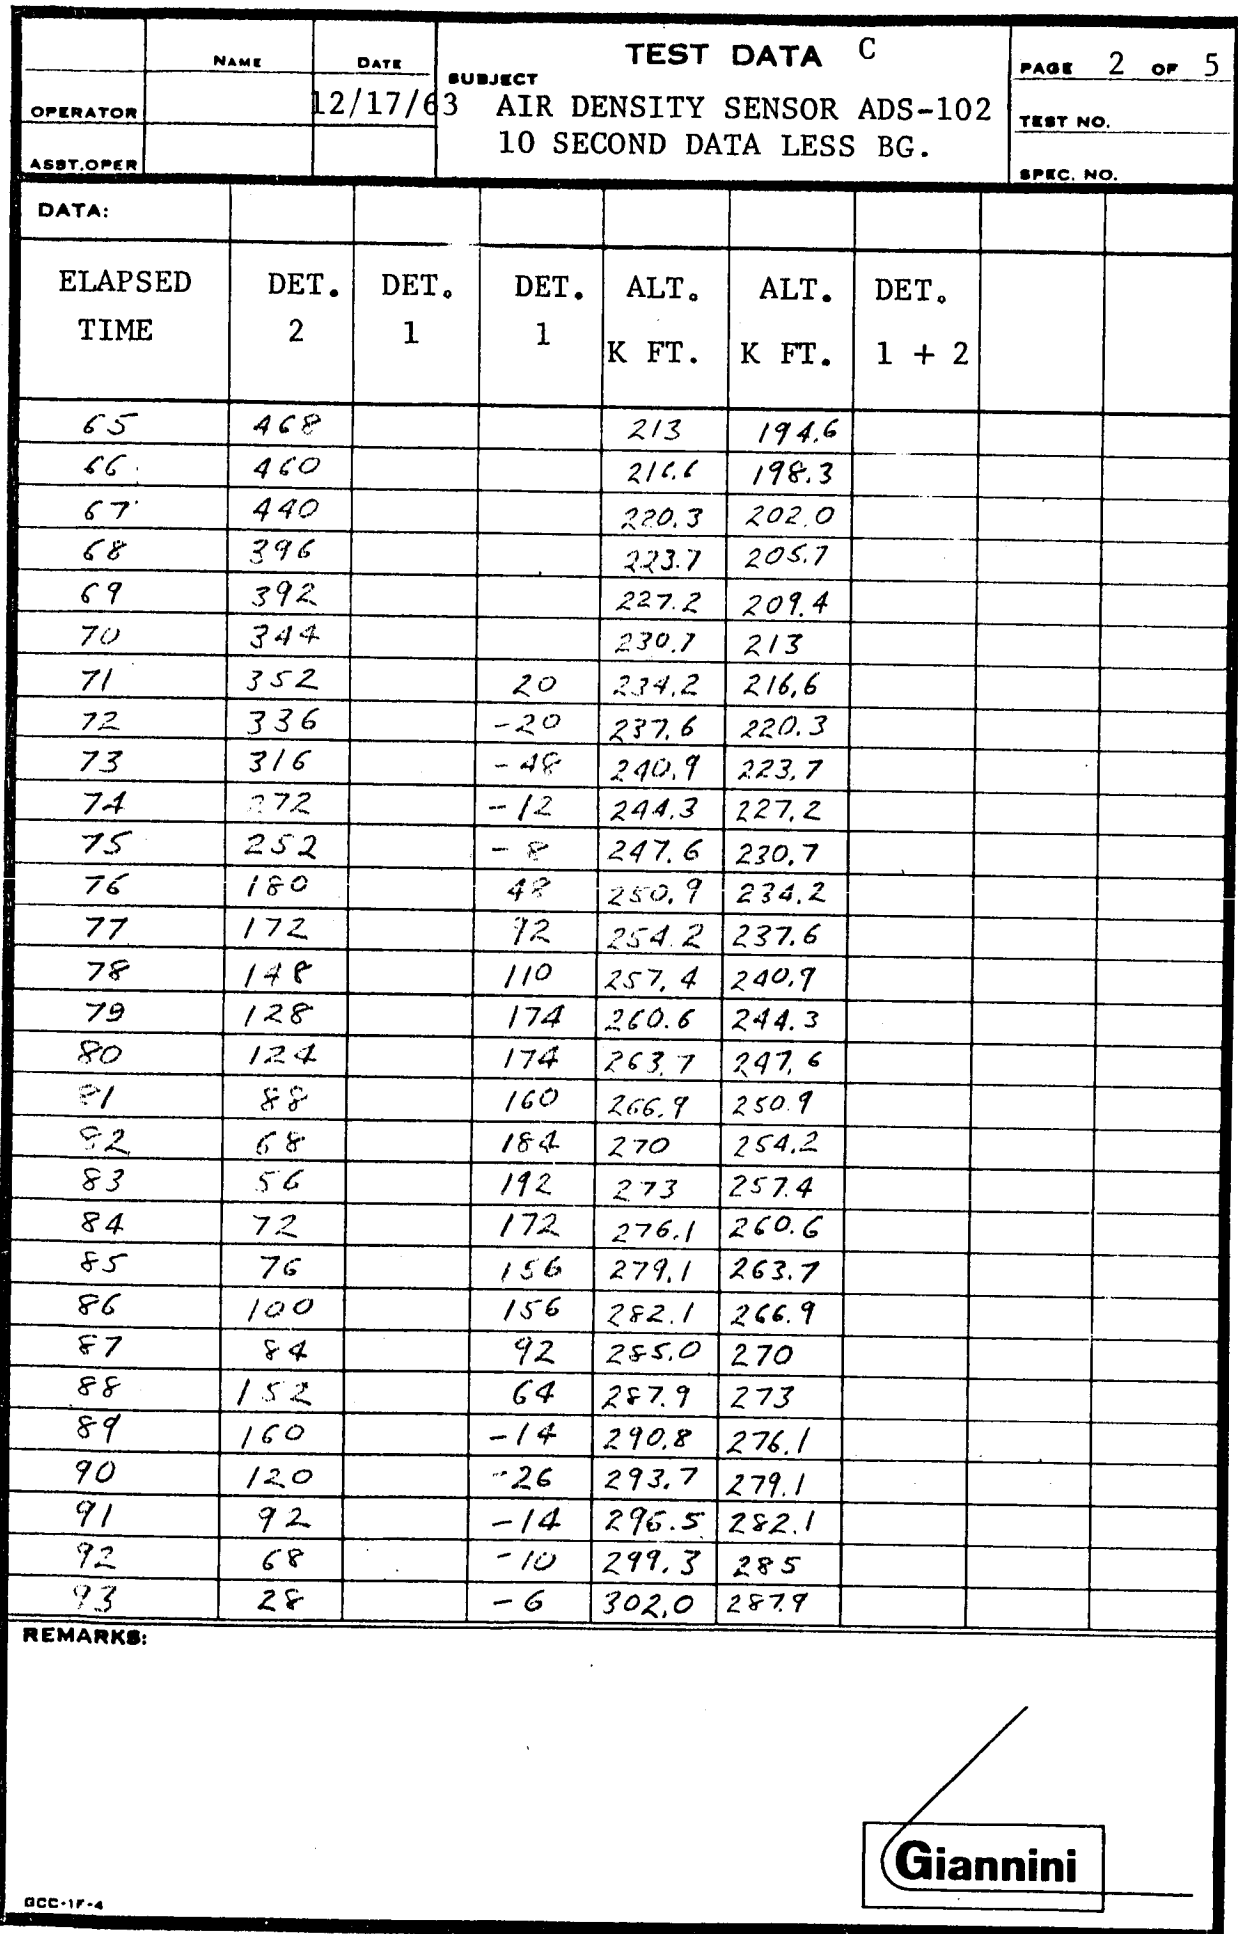 TEST DATA C
NAME DATE SUBJECT PAGE 2 OF 5
OPERATOR 12/17/63 AIR DENSITY SENSOR ADS-102 TEST NO.
10 SECOND DATA LESS BG.
ASST.OPER SPEC. NO.
DATA:
ELAPSED DET. DET. DET. ALT. ALT. DET.
TIME 2 1 1 K FT. K FT. 1 + 2
65 468 213 194.6
66 460 216.6 198.3
67 440 220.3 202.0
68 396 223.7 205.7
69 392 227.2 209.4
70 344 230.7 213
71 352 20 234.2 216.6
72 336 -20 237.6 220.3
73 316 -48 240.9 223.7
74 272 -12 244.3 227.2
75 252 -8 247.6 230.7
76 180 48 250.9 234.2
77 172 92 254.2 237.6
78 148 110 257.4 240.9
79 128 174 260.6 244.3
80 124 174 263.7 247.6
81 88 160 266.9 250.9
82 68 184 270 254.2
83 56 192 273 257.4
84 72 172 276.1 260.6
85 76 156 279.1 263.7
86 100 156 282.1 266.9
87 84 92 285.0 270
88 152 64 287.9 273
89 160 -14 290.8 276.1
90 120 -26 293.7 279.1
91 92 -14 296.5 282.1
92 68 -10 299.3 285
93 28 -6 302.0 287.9
REMARKS:
Giannini
GCC-1F-4